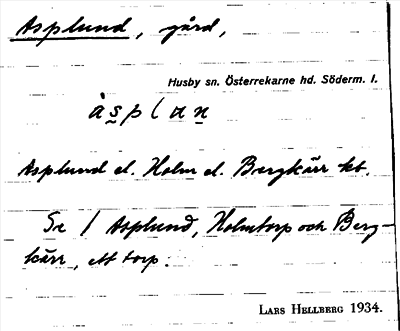 Asplund, gård,
Husby sn. Österrekarne hd. Söderm. l.
àsplan
Asplund el. Holm el. Bergkärr kb.
Se / Asplund, Holmtorp och Berg-
kärr, ett torp.
LARS HELLBERG 1934.